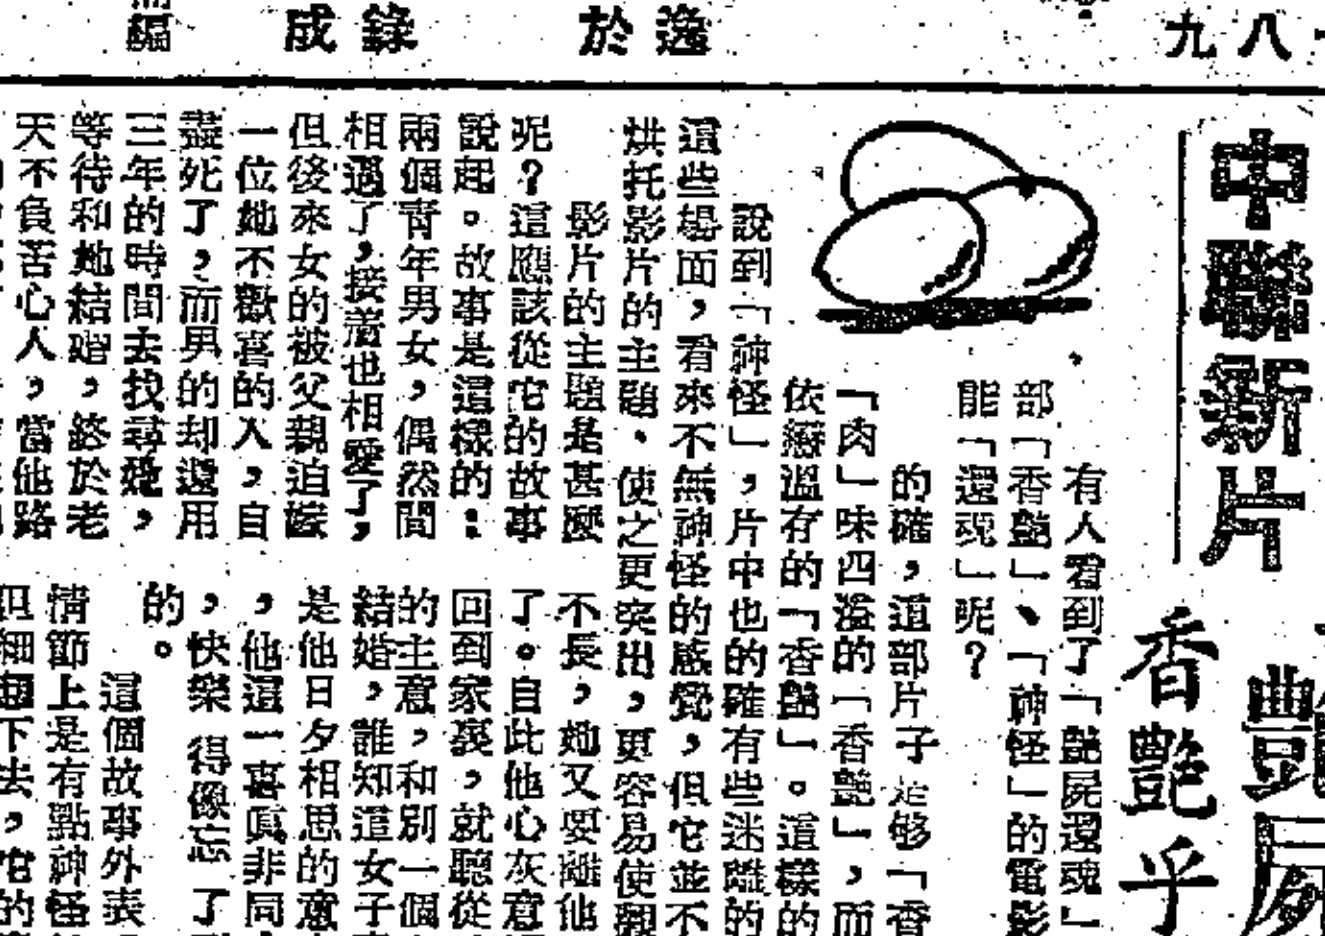 編
成錄
於逸
九八
中聯新片
豔屍
香艷乎
有人看到了「豔屍還魂」
部「香豔」、「神怪」的電影
能「還魂」呢？
的確，這部片子是够「香
「肉」味四溢的「香艷」，而
依戀溫存的「香豔」。這樣的
說到「神怪」，片中也的確有些迷離的
這些場面，看來不無神怪的感覺，但它並不
烘托影片的主題，使之更突出，更容易使觀
影片的主題是甚麼
呢？這應該從它的故事
說起。故事是這樣的：
兩個青年男女，偶然間
相遇了，接着也相愛了，
但後來女的被父親迫嫁
一位她不歡喜的人，自
盡死了，而男的却還用
三年的時間去找尋她，
等待和她結婚，終於老
天不負苦心人，當他路
不長，她又要離他
了。自此他心灰意
回到家裏，就聽從
的主意，和別一個
結婚，誰知這女子
是他日夕相思的意
，他這一喜真非同
，快樂得像忘了
的。
這個故事外表
情節上是有點神怪
但細想下去，它的